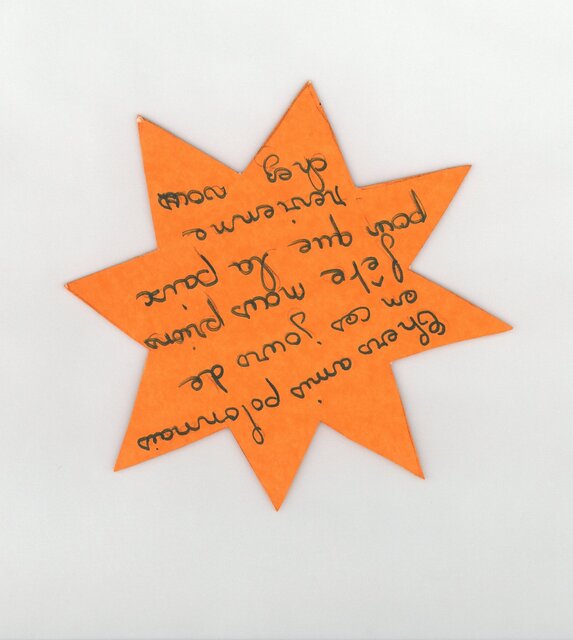 Chers amis polonnais
en ces jours de
fête nous prions
pour que la paix
revienne
chez vous